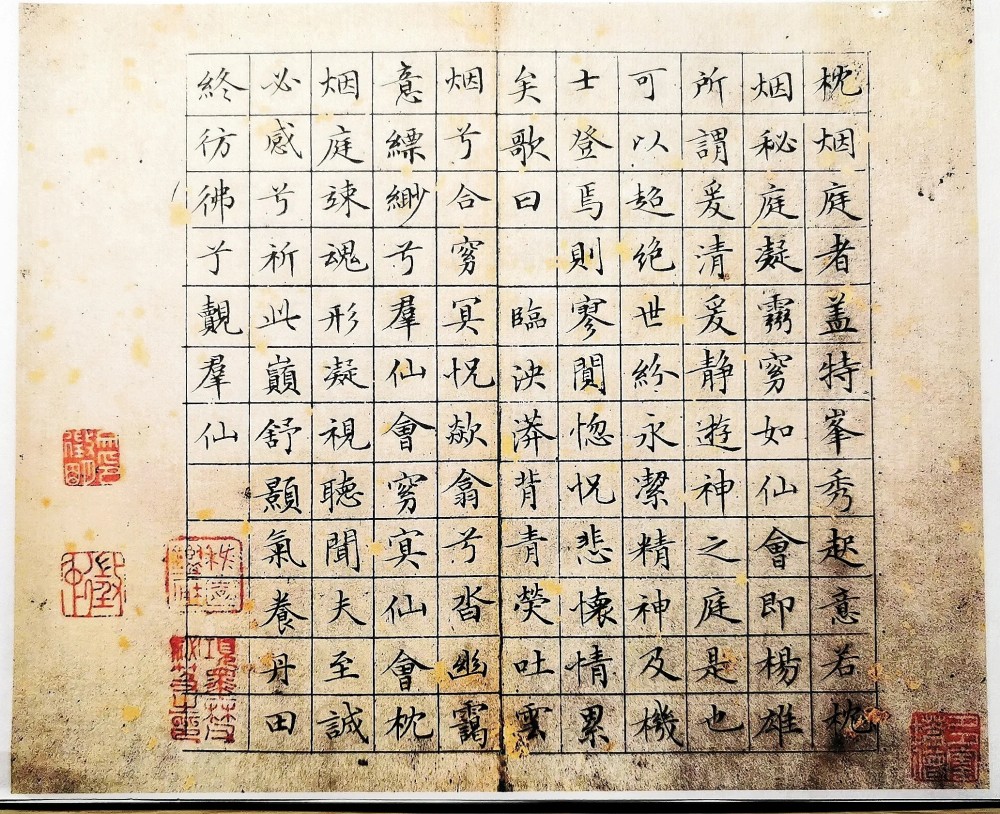 枕烟庭者盖特峯秀起意若枕
烟秘庭凝窈如仙會即楊雄
所謂爰清爰静遊神之庭是也
可以超絶世紛永潔精神及機
士登焉則寥闃惚怳悲懷情累
矣歌曰 臨泱漭背青熒吐雲
烟兮合窈冥怳欻翕兮沓幽靄
意縹緲兮羣仙會窈冥仙會枕
烟庭竦魂形凝視聽聞夫至誠
必感兮祈此巔舒顥氣養丹田
終彷彿兮覿羣仙